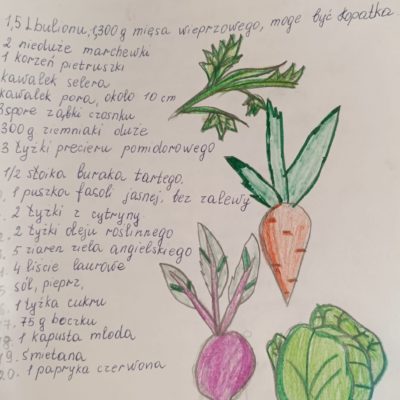 1,5 L bulionu, 1,300 g mięsa wieprzowego, moge być łopatka.
2 nieduże marchewki
1 korzeń pietruszki
kawałek selera
kawałek pora, około 10 cm
3 spore ząbki czosnku
300 g ziemniaki duże
3 łyżki przecieru pomidorowego
1/2 słoika buraka tartego.
1 puszka fasoli jasnej, bez zalewy
2 łyżki z cytryny.
2 łyżki oleju roślinnego
5 ziaren ziela angielskiego
4 liście laurowe
sól, pieprz,
1 łyżka cukru
17. 75 g boczku
18. 1 kapusta młoda
19. śmietana
20. 1 papryka czerwona